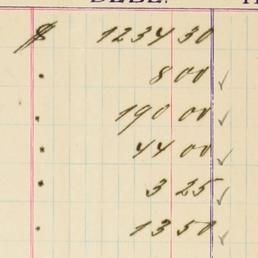 $ 1234 30
" 8 00 ✓
" 190 00 ✓
" 44 00 ✓
" 3 25 ✓
" 13 50 ✓